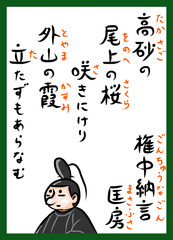 高砂の
尾上の桜
咲きにけり
外山の霞
立たずもあらなむ
権中納言
匡房
たかさご
をのへ
さくら
さ
とやま
かすみ
た
ごんちゅうなごん
まさふさ